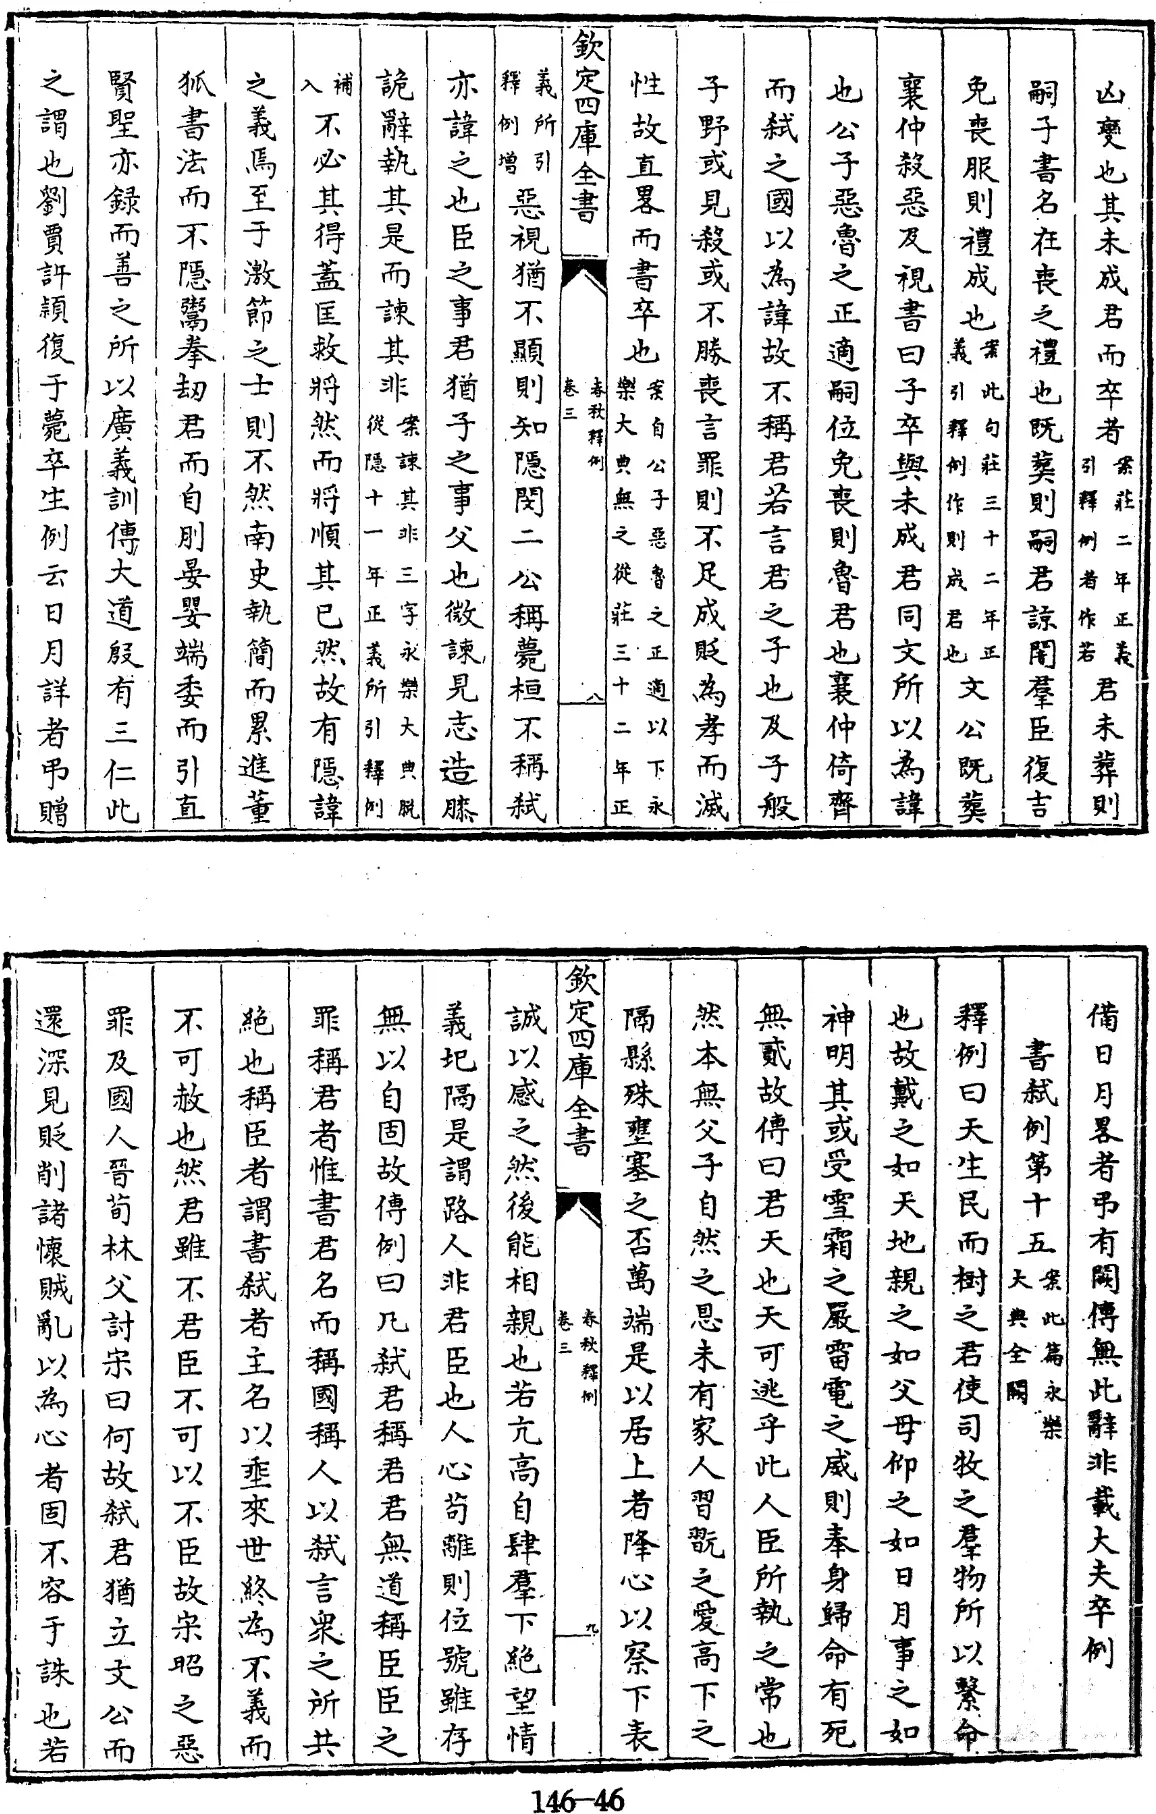 凶變也其未成君而卒者案莊二年正義引釋例者作若君未葬則
嗣子書名在喪之禮也既葬則嗣君諒闇羣臣復吉
免喪服則禮成也案此句莊三十二年正義引釋例作則成君也文公既葬
襄仲殺惡及視書曰子卒與未成君同文所以為諱
也公子惡魯之正適嗣位免喪則魯君也襄仲倚齊
而弑之國以為諱故不稱君若言君之子也及子般
子野或見殺或不勝喪言罪則不足成貶為孝而滅
性故直畧而書卒也案自公子惡魯之正適以下永樂大典無之從莊三十二年正
欽定四庫全書 春秋釋例卷三 八
義所引釋例增惡視猶不顯則知隱閔二公稱薨桓不稱弑
亦諱之也臣之事君猶子之事父也微諫見志造膝
詭辭執其是而諫其非案諫其非三字永樂大典脫從隱十一年正義所引釋例
補入不必其得蓋匡救將然而將順其已然故有隱諱
之義焉至于激節之士則不然南史執簡而累進董
狐書法而不隱鬻拳劫君而自刖晏嬰端委而引直
賢聖亦録而善之所以廣義訓傳大道殷有三仁此
之謂也劉賈許頴復于薨卒生例云日月詳者弔贈
備日月畧者弔有闕傳無此辭非載大夫卒例
書弑例第十五案此篇永樂大典全闕
釋例曰天生民而樹之君使司牧之羣物所以繫命
也故戴之如天地親之如父母仰之如日月事之如
神明其或受雪霜之嚴雷電之威則奉身歸命有死
無貳故傳曰君天也天可逃乎此人臣所執之常也
然本無父子自然之恩未有家人習翫之愛高下之
隔縣殊壅塞之否萬端是以居上者降心以察下表
欽定四庫全書 春秋釋例卷三 九
誠以感之然後能相親也若亢高自肆羣下絶望情
義圮隔是謂路人非君臣也人心苟離則位號雖存
無以自固故傳例曰凡弑君稱君君無道稱臣臣之
罪稱君者惟書君名而稱國稱人以弑言衆之所共
絶也稱臣者謂書弑者主名以垂來世終為不義而
不可赦也然君雖不君臣不可以不臣故宋昭之惡
罪及國人晉荀林父討宋曰何故弑君猶立文公而
還深見貶削諸懷賊亂以為心者固不容于誅也若
146-46